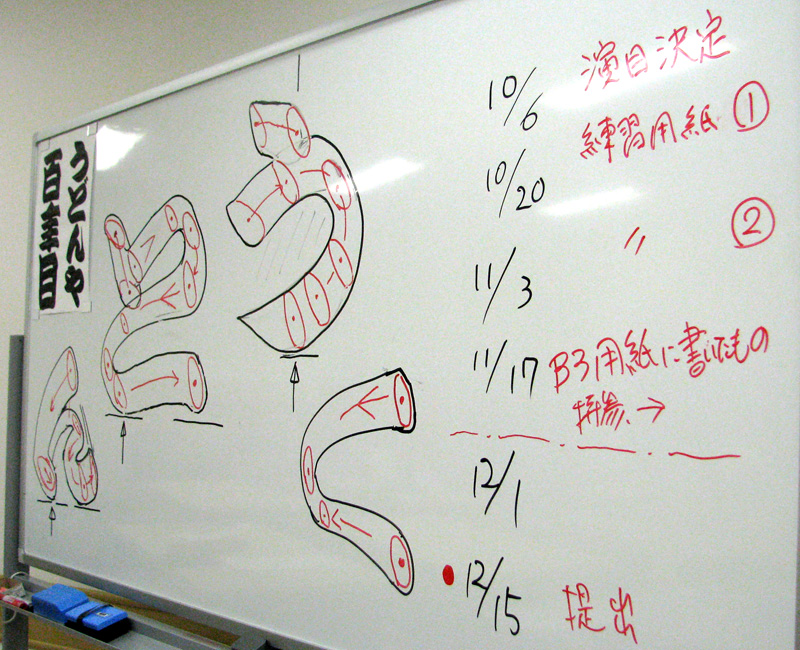 うどんや
百年目
う
く
10/6 演目決定
10/20 練習用紙 ①
11/3 〃 ②
11/17 B3用紙に書いたもの
持参→
12/1
● 12/15 提出